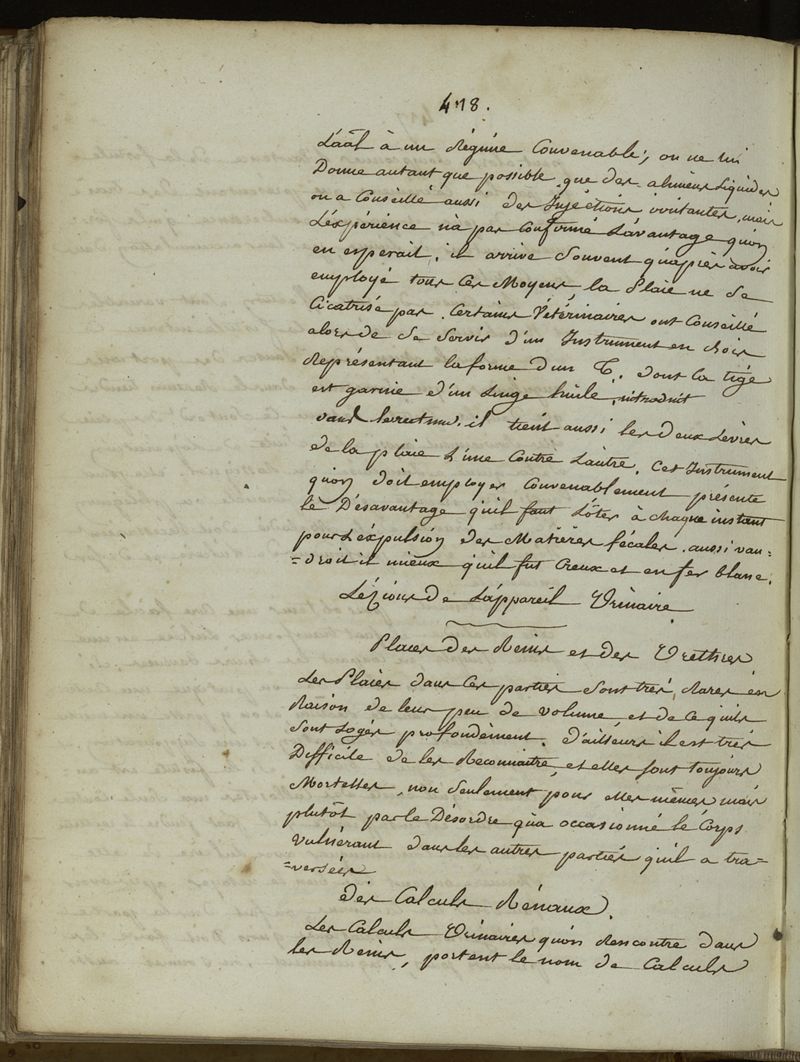 478.
L'aât à un Régime Convenable; on ne lui
Donne autant que possible que des alimens Liquides
on a Conseillé aussi des Injections irritantes, mais
L'éxpérience n'a pas Confirmé L'avantage qu'on
en esperait. il arrive Souvent qu'après avoir
employé tous Ces Moyens, la Plaie ne Se
Cicatrise pas. Certains Vétérinaires ont Conseillé
alors de Se Servir d'un Instrument en bois
Représentant la forme d'un T. dont la tige
est garnie d'un Linge huilé, introduit
dans le rectum. il tient aussi les Deux Lèvres
de la plaie L'une Contre L'autre. Cet Instrument
qu'on doit employer Convenablement présente
le Désavantage qu'il faut L'ôter à chaque instant
pour L'éxpulsion des Matières fécales. aussi vau=
=droit il mieux qu'il fut Creux et en fer blanc.
Lézions de L'appareil Urinaire
Plaies des Reins et des Urethres
Les Plaies dans Ces parties Sont trés Rares én
Raison de leur peu de volume, et de Ce qu'ils
Sont Logés profondément. D'ailleurs il est trés
Difficile de les Reconnaitre, et elles sont toujours
Mortelles, non Seulement pour elles mêmes mais
plutôt par le Désordre qu'a occasionné le Corps
Vulnérant dans les autres parties qu'il a tra=
=versées
Des Calculs Rénaux.
Les Calculs Urinaires qu'on Rencontre dans
les Reins, portent le nom de Calculs